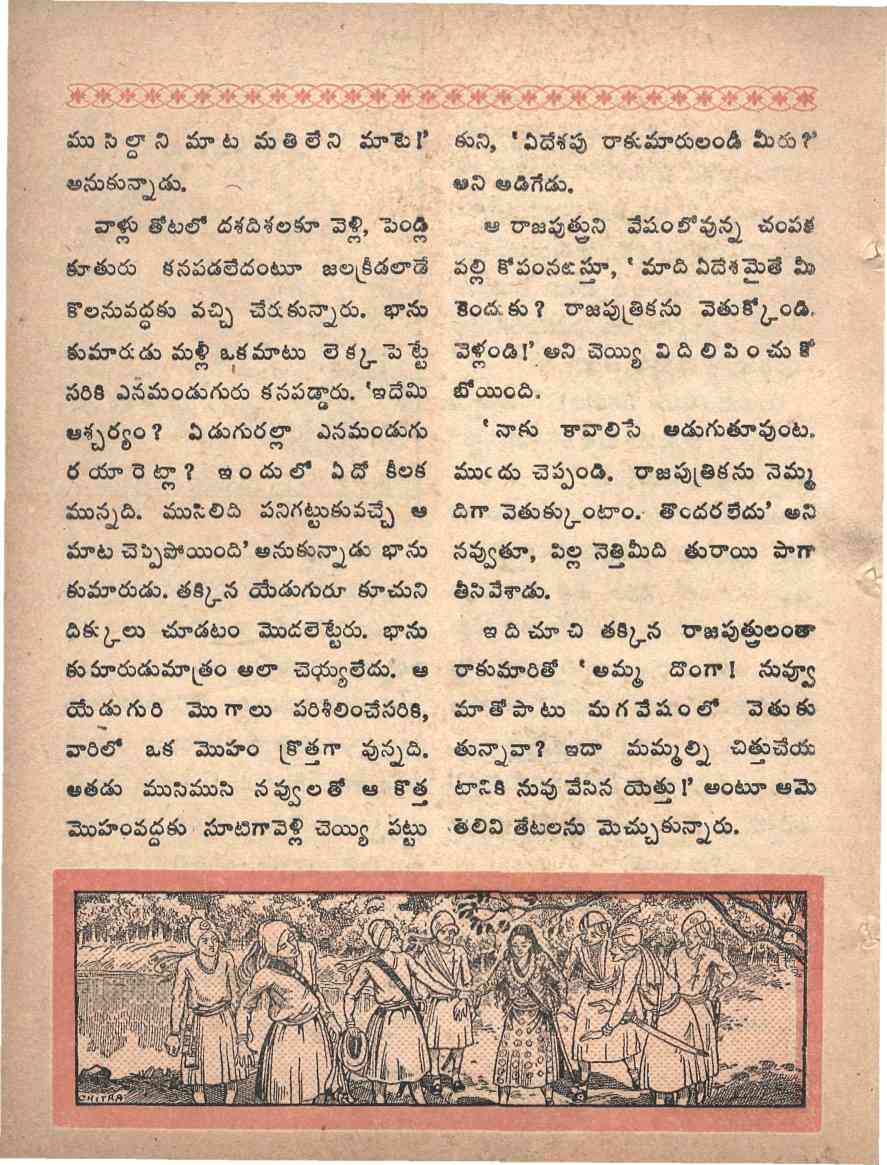 ముసిల్దాని మాట మతిలేని మాటె!’
అనుకున్నాడు.
వాళ్లు తోటలో దశదిశలకూ వెళ్లి, పెండ్లి
కూతురు కనపడలేదంటూ జలక్రీడలాడే
కొలనువద్దకు వచ్చి చేరుకున్నారు. భాను
కుమారుడు మళ్లీ ఒకమాటు లెక్కపెట్టే
సరికి ఎనమండుగురు కనపడ్డారు. ‘ఇదేమి
ఆశ్చర్యం? ఏడుగురల్లా ఎనమండుగు
రయారెట్లా? ఇందులో ఏదో కీలక
మున్నది. ముసిలిది పనిగట్టుకువచ్చే ఆ
మాట చెప్పిపోయింది’ అనుకున్నాడు భాను
కుమారుడు. తక్కిన యేడుగురూ కూచుని
దిక్కులు చూడటం మొదలెట్టేరు. భాను
కుమారుడుమాత్రం అలా చెయ్యలేదు. ఆ
యేడుగురి మొగాలు పరిశీలించేసరికి,
వారిలో ఒక మొహం క్రొత్తగా వున్నది.
అతడు ముసిముసి నవ్వులతో ఆ కొత్త
మొహంవద్దకు సూటిగావెళ్లి చెయ్యి పట్టు
కుని, ‘ఏదేశపు రాకుమారులండీ మీరు?’
అని అడిగేడు.
ఆ రాజపుత్రుని వేషంలోవున్న చంపక
వల్లి కోపంనటిస్తూ, ‘మాది ఏదేశమైతే మీ
కెందుకు? రాజపుత్రికను వెతుక్కోండి.
వెళ్లండి!’ అని చెయ్యి విదిలిపించుకో
బోయింది.
‘నాకు కావాలిసే అడుగుతూవుంట.
ముందు చెప్పండి. రాజపుత్రికను నెమ్మ
దిగా వెతుక్కుంటాం. తొందరలేదు’ అని
నవ్వుతూ, పిల్ల నెత్తిమీది తురాయి పాగా
తీసివేశాడు.
ఇది చూచి తక్కిన రాజపుత్రులంతా
రాకుమారితో ‘అమ్మ దొంగా! నువ్వూ
మాతోపాటు మగవేషంలో వెతుకు
తున్నావా? ఇదా మమ్మల్ని చిత్తుచేయ
టానికి నువు వేసిన యెత్తు!’ అంటూ ఆమె
తెలివి తేటలను మెచ్చుకున్నారు.
CHITRA